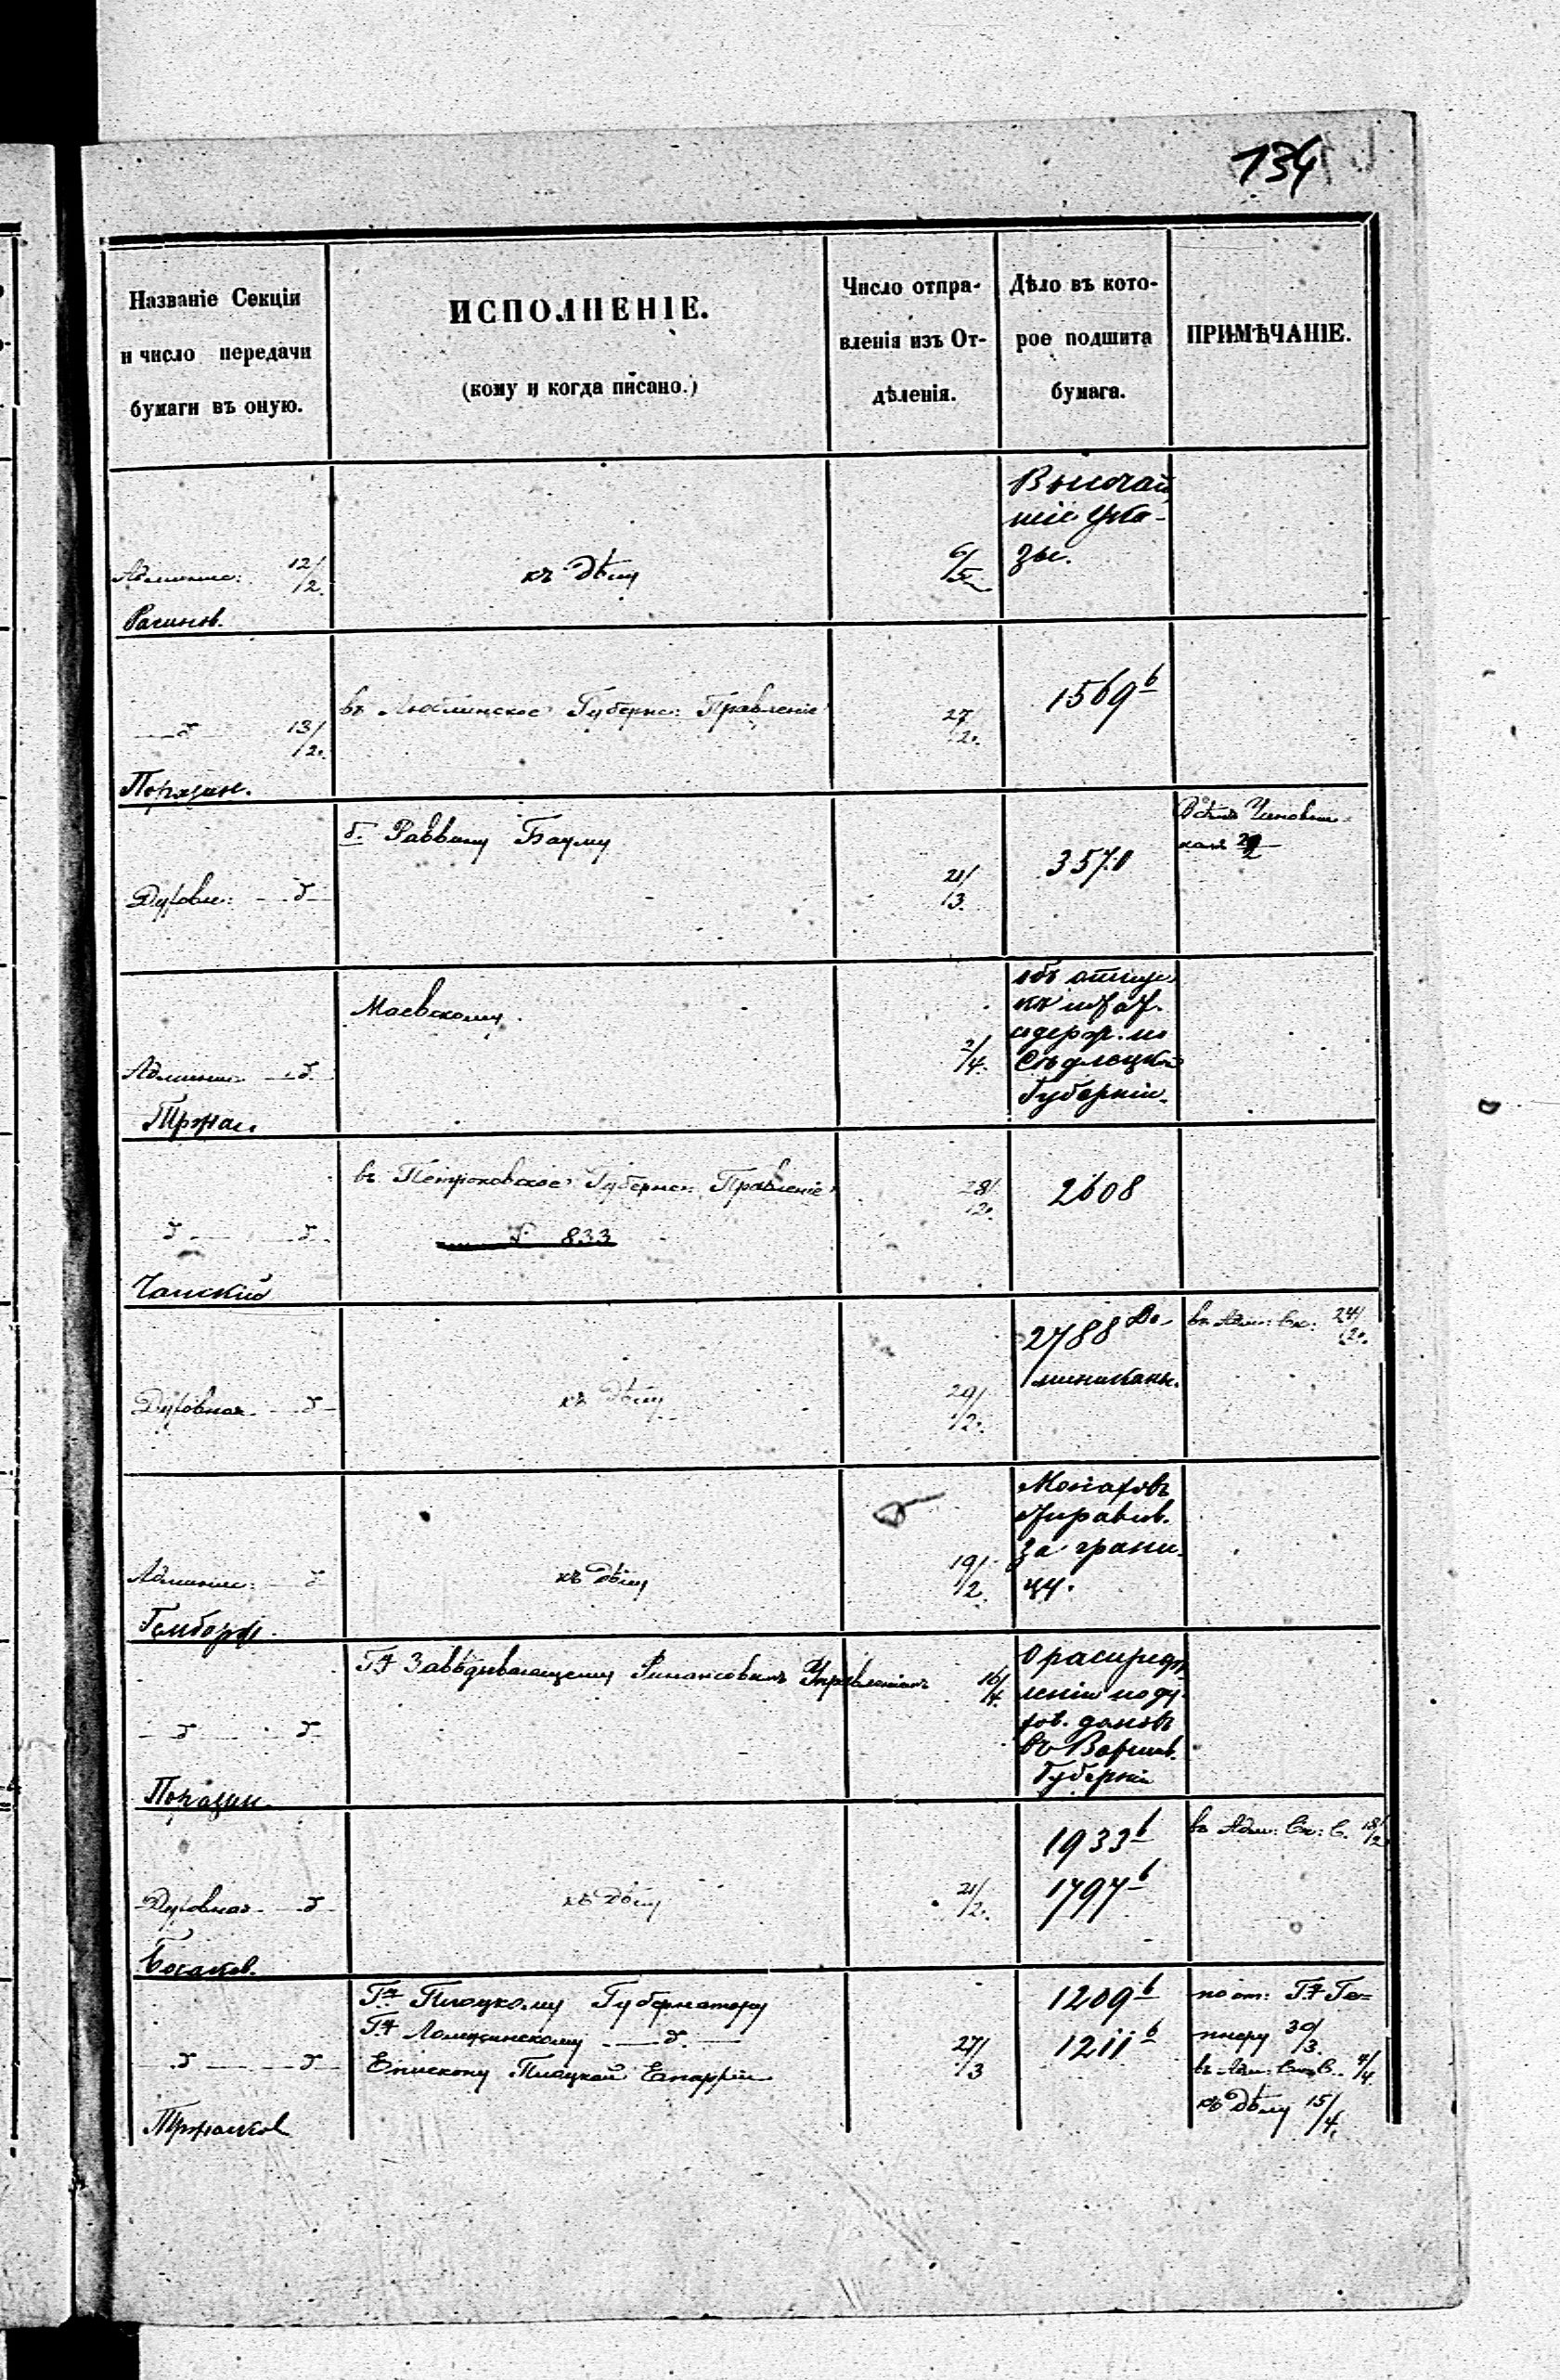 134
Названіе Секціи
и число передачи
бумаги въ оную.
ИСПОЛНЕНІЕ.
(кому и когда писано.)
Число отпра-
вленія изъ От-
дѣленія.
Дѣло въ кото-
рое подшита
бумага.
ПРИМѢЧАНІЕ.
Админис: 12/2.
къ дѣлу
6/5
Высочай
шіе Ука-
зы.
д 13/2.
въ Люблинское Губернс: Правленіе
27/2.
1569 b
Духовн: д
б. Раввину Бауму
21/3.
3570
Всѣмъ Чиновни-
камъ
Админис д.
Маевскому.
2/4.
объ отпус
Сѣдлецкой
Губерніи.
д д.
въ Петроковское Губернс: Правленіе
№ 833
28/2.
2608
Чайскій
Духовная д
къ дѣлу
29/2.
2788 До-
миникане.
въ Адм: Ск: 24/2.
Админис: д
къ дѣлу
19/2.
Монаховъ
отправлв.
за грани-
цу.
д д
Гну Завѣдывающему Финансовымъ Управленіемъ
16/4.
О распредѣ
леніи по ду
хов. домовъ
въ Варшав.
Губерніи
Духовная д
къ дѣлу
21/2.
1933 b
1797 b
въ Адм: Ск: С. 18/2
д д
Гну Плоцкому Губернатору
Гну Ломжинскому д.
Епископу Плоцкой Епархіи
27/3
1209 b
1211 b
по от: Гну Ге=
30/3.
въ Адм: 4/4
къ дѣлу 15/4.